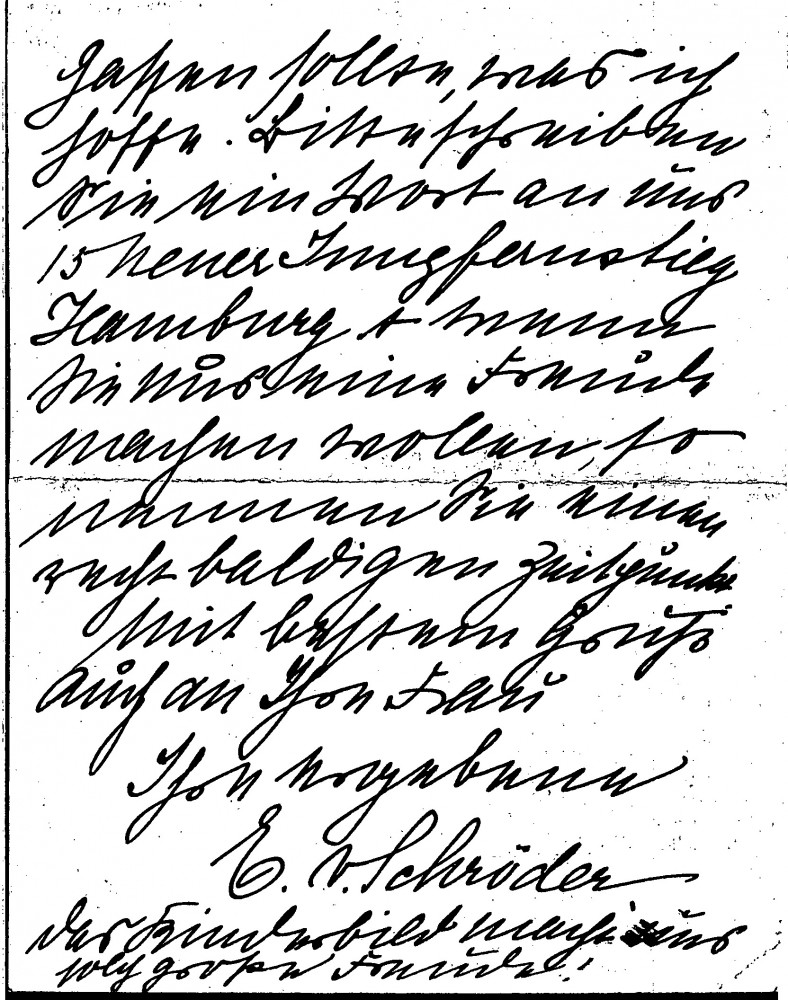 passen sollte, was ich
hoffe. Bitte schreiben
Sie ein Wort an uns
15 Neuer Jungfernstieg
Hamburg + wenn
Sie uns eine Freude
machen wollen, so
nennen Sie einen
recht baldigen Zeitpunkt
Mit bestem Gruß
auch an Ihre Frau
Ihre ergebene
E. v. Schröder
das Kinderbild macht uns
solch große Freude!